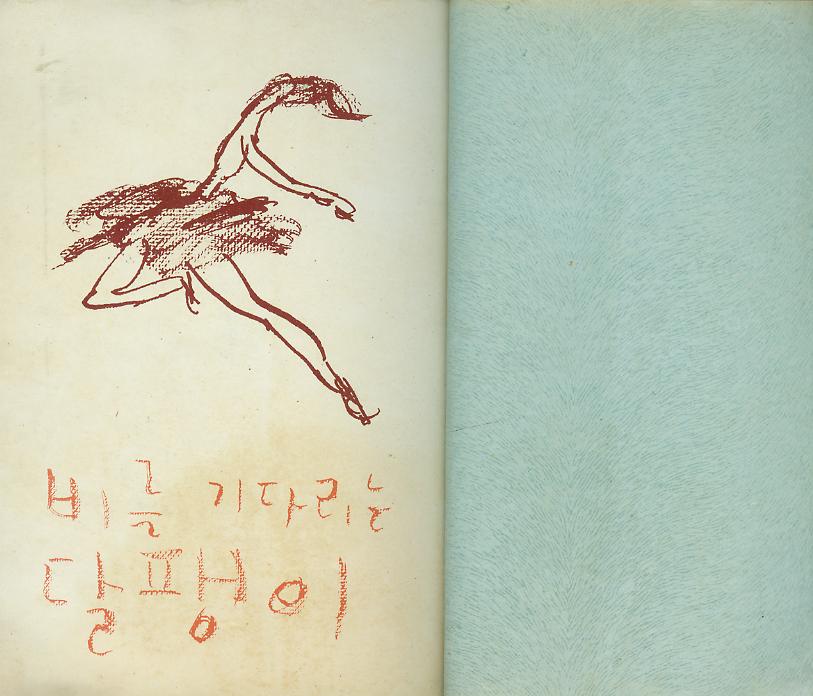 비를 기다리는
달팽이